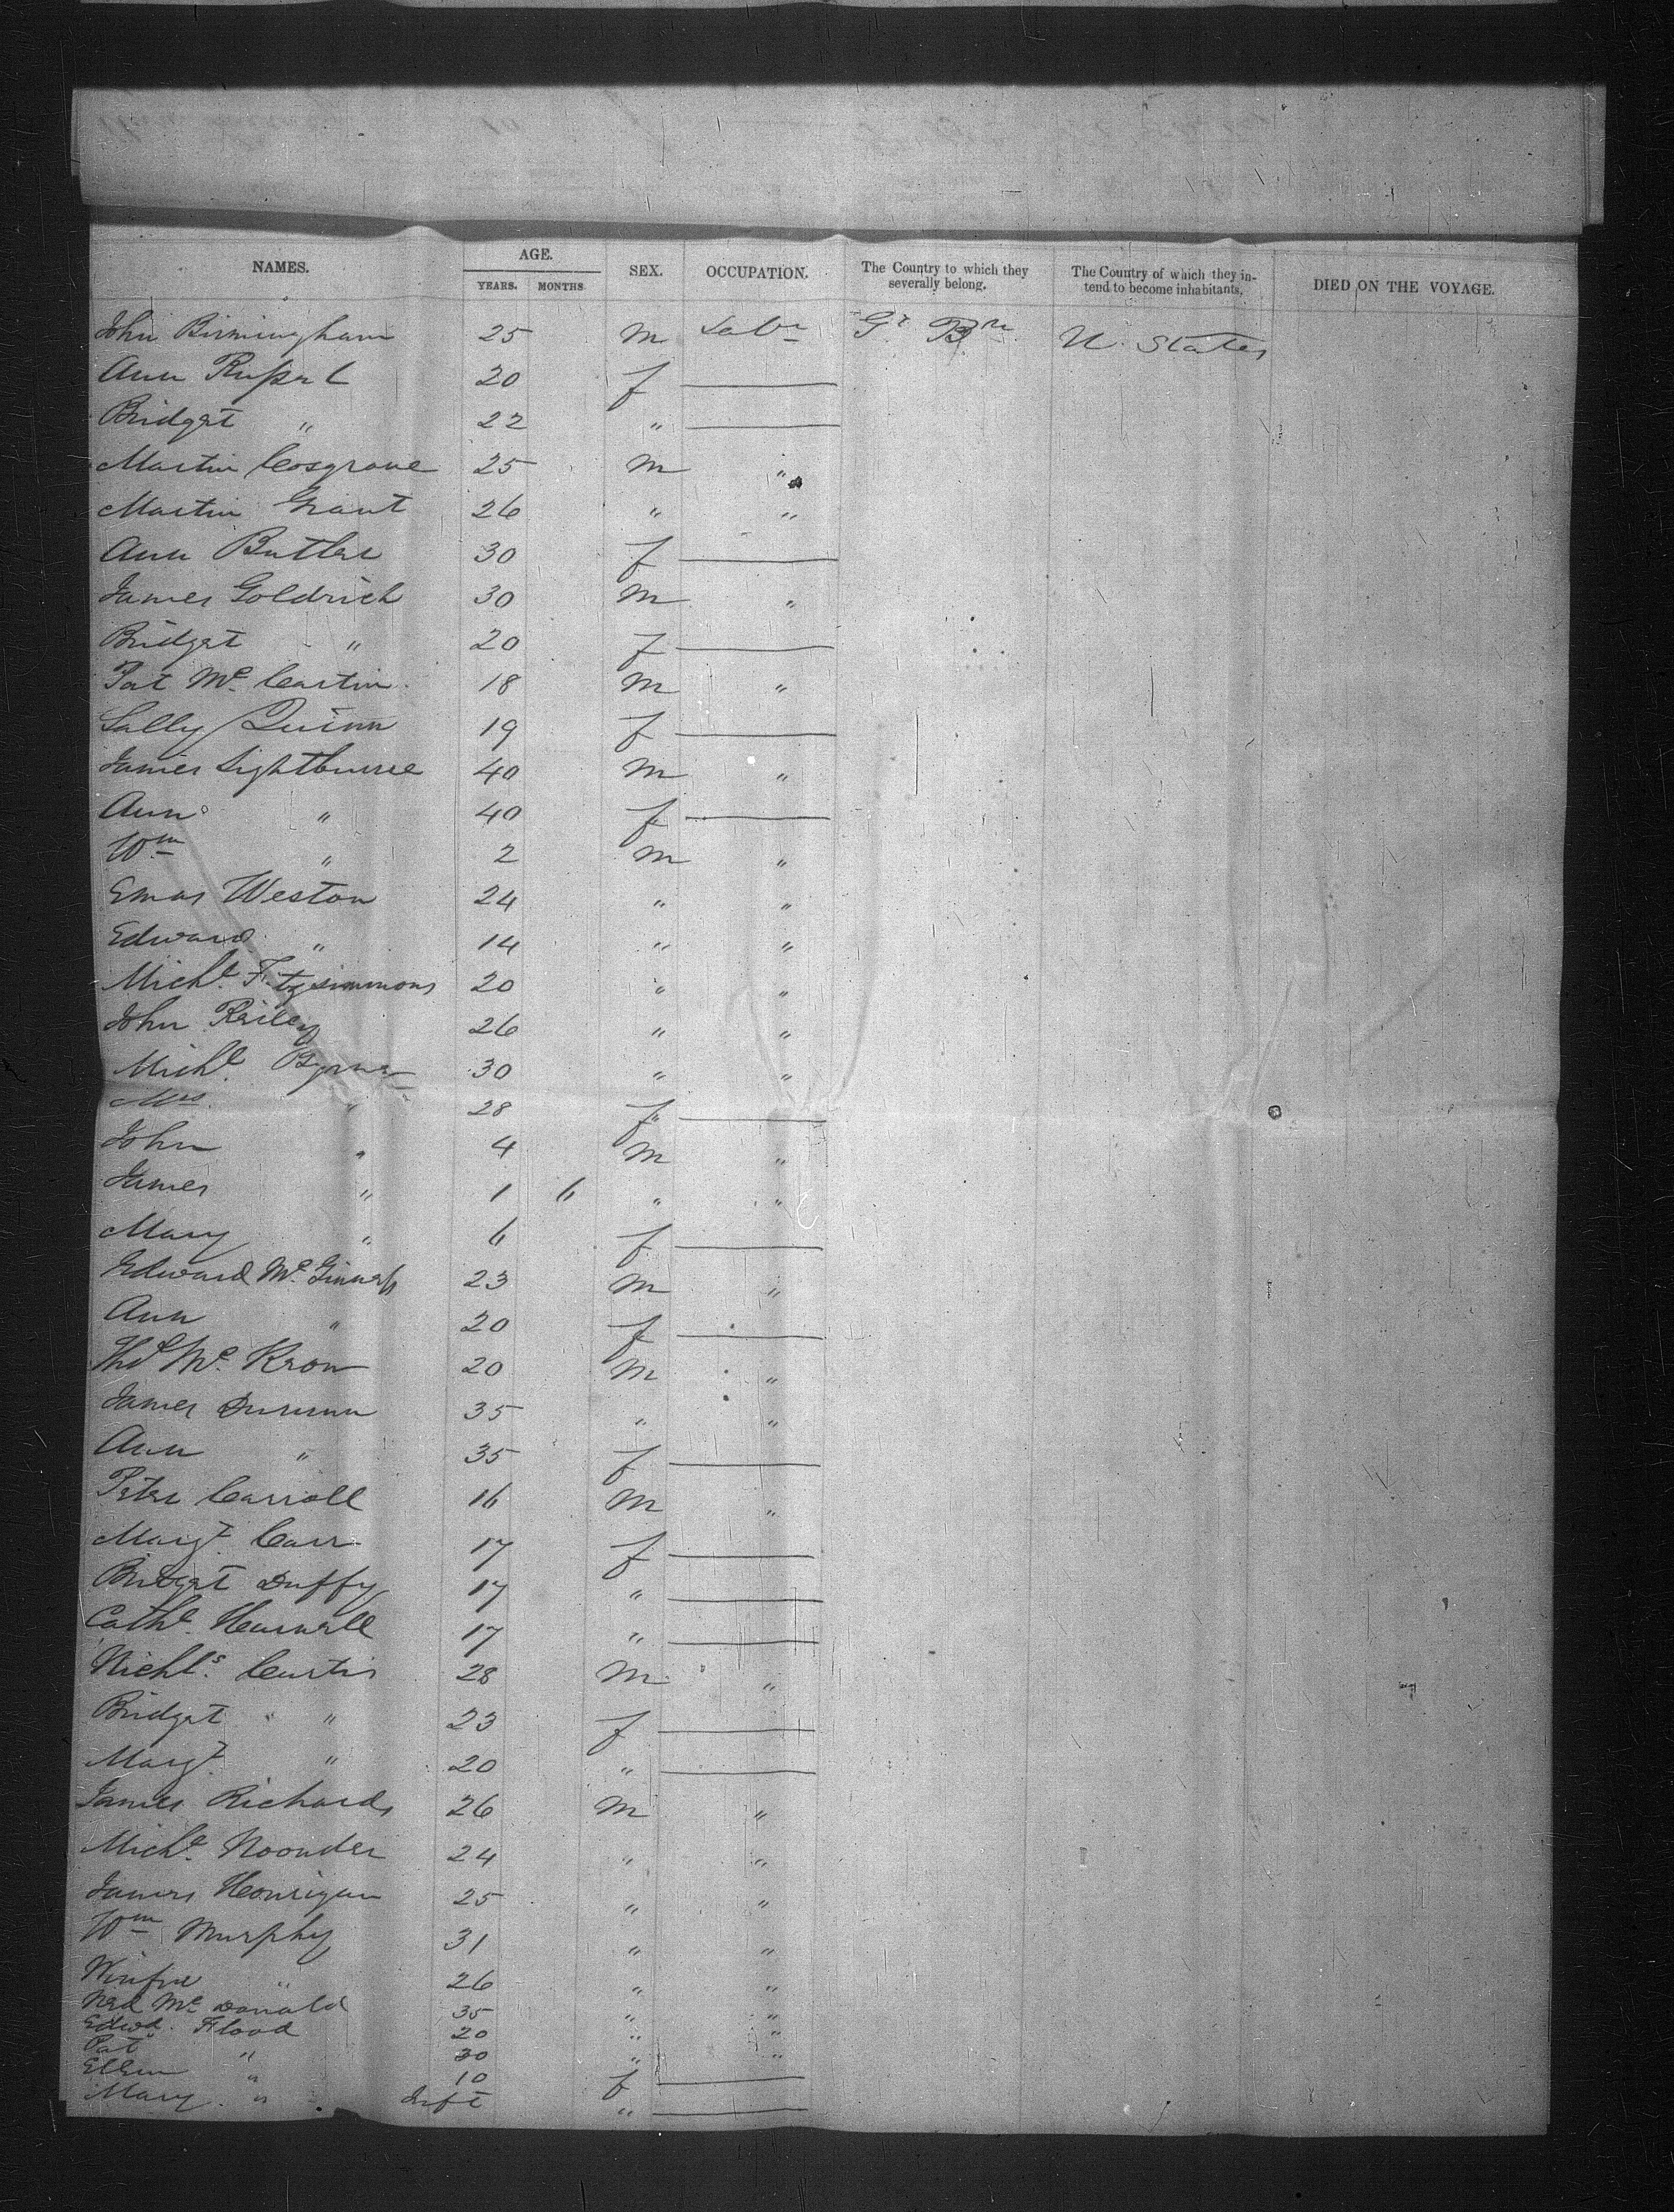 NAMES. AGE. YEARS. MONTHS. SEX. OCCUPATION. The Country to which they severally belong. The Country of which they intend to become inhabitants. DIED ON THE VOYAGE.
John Birmingham 25 m Labr Gt Bn U. States
Ann Russel 20 f
Bridget " 22 "
Martin Cosgrove 25 m "
Martin Grant 26 " "
Ann Butler 30 f
James Goldrich 30 m "
Bridget " 20 f
Pat Mc Cartin 18 m "
Sally Quinn 19 f
James Lightburne 40 m "
Ann " 40 f
Wm " 2 m "
Weston 24 " "
Edward " 14 " "
Michl Fitzsimmons 20 " "
John Reiley 26 " "
Michl Byrne 30 " "
Mrs " 28 f
John " 4 m "
James " 1 6 " "
Mary " 6 f
Edward McGinness 23 m "
Ann " 20 f
Mc Keon 20 m "
James 35 " "
Ann " 35 f
Peter Carroll 16 m "
Margt Carr 17 f
Bridget Duffy 17 "
Cathe 17 "
Nichls Curtis 28 m "
Bridget " 23 f
Margt " 20 "
James Richards 26 m "
Michl 24 " "
James Honrigan 25 " "
Wm Murphy 31 " "
" 26 " "
Ned Mc Donald 35 " "
Edwd. Flood 20 " "
Pat " 30 " "
Ellen " 10 f
Mary " Inft "